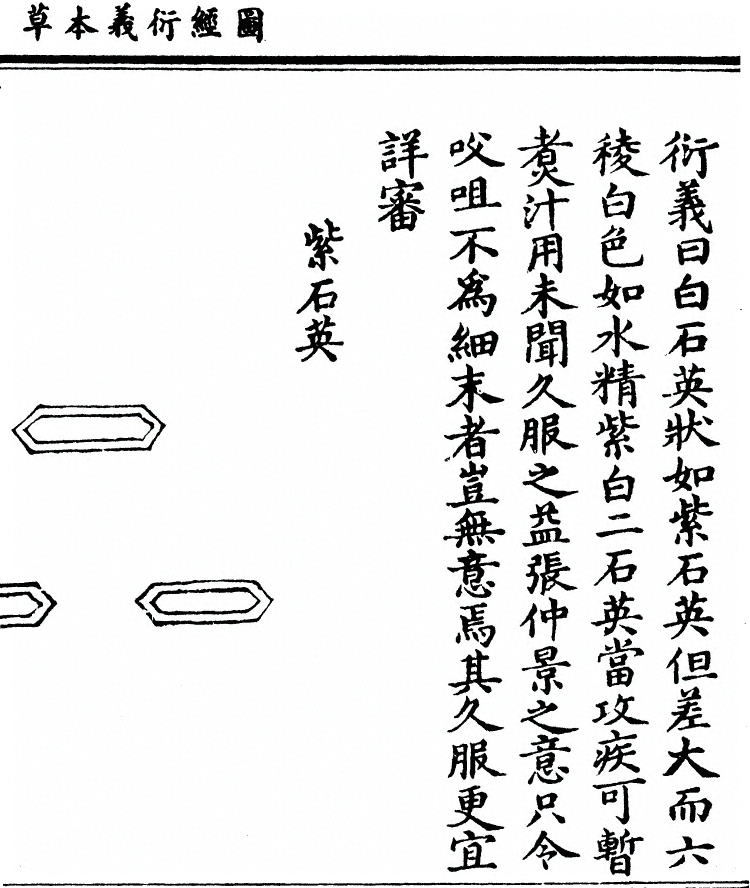 圖經衍義本草
衍義曰白石英狀如紫石英但差大而六
稜白色如水精紫白二石英當攻疾可暫
煑汁用未聞久服之益張仲景之意只令
㕮咀不爲細末者豈無意焉其久服更宜
詳審
紫石英